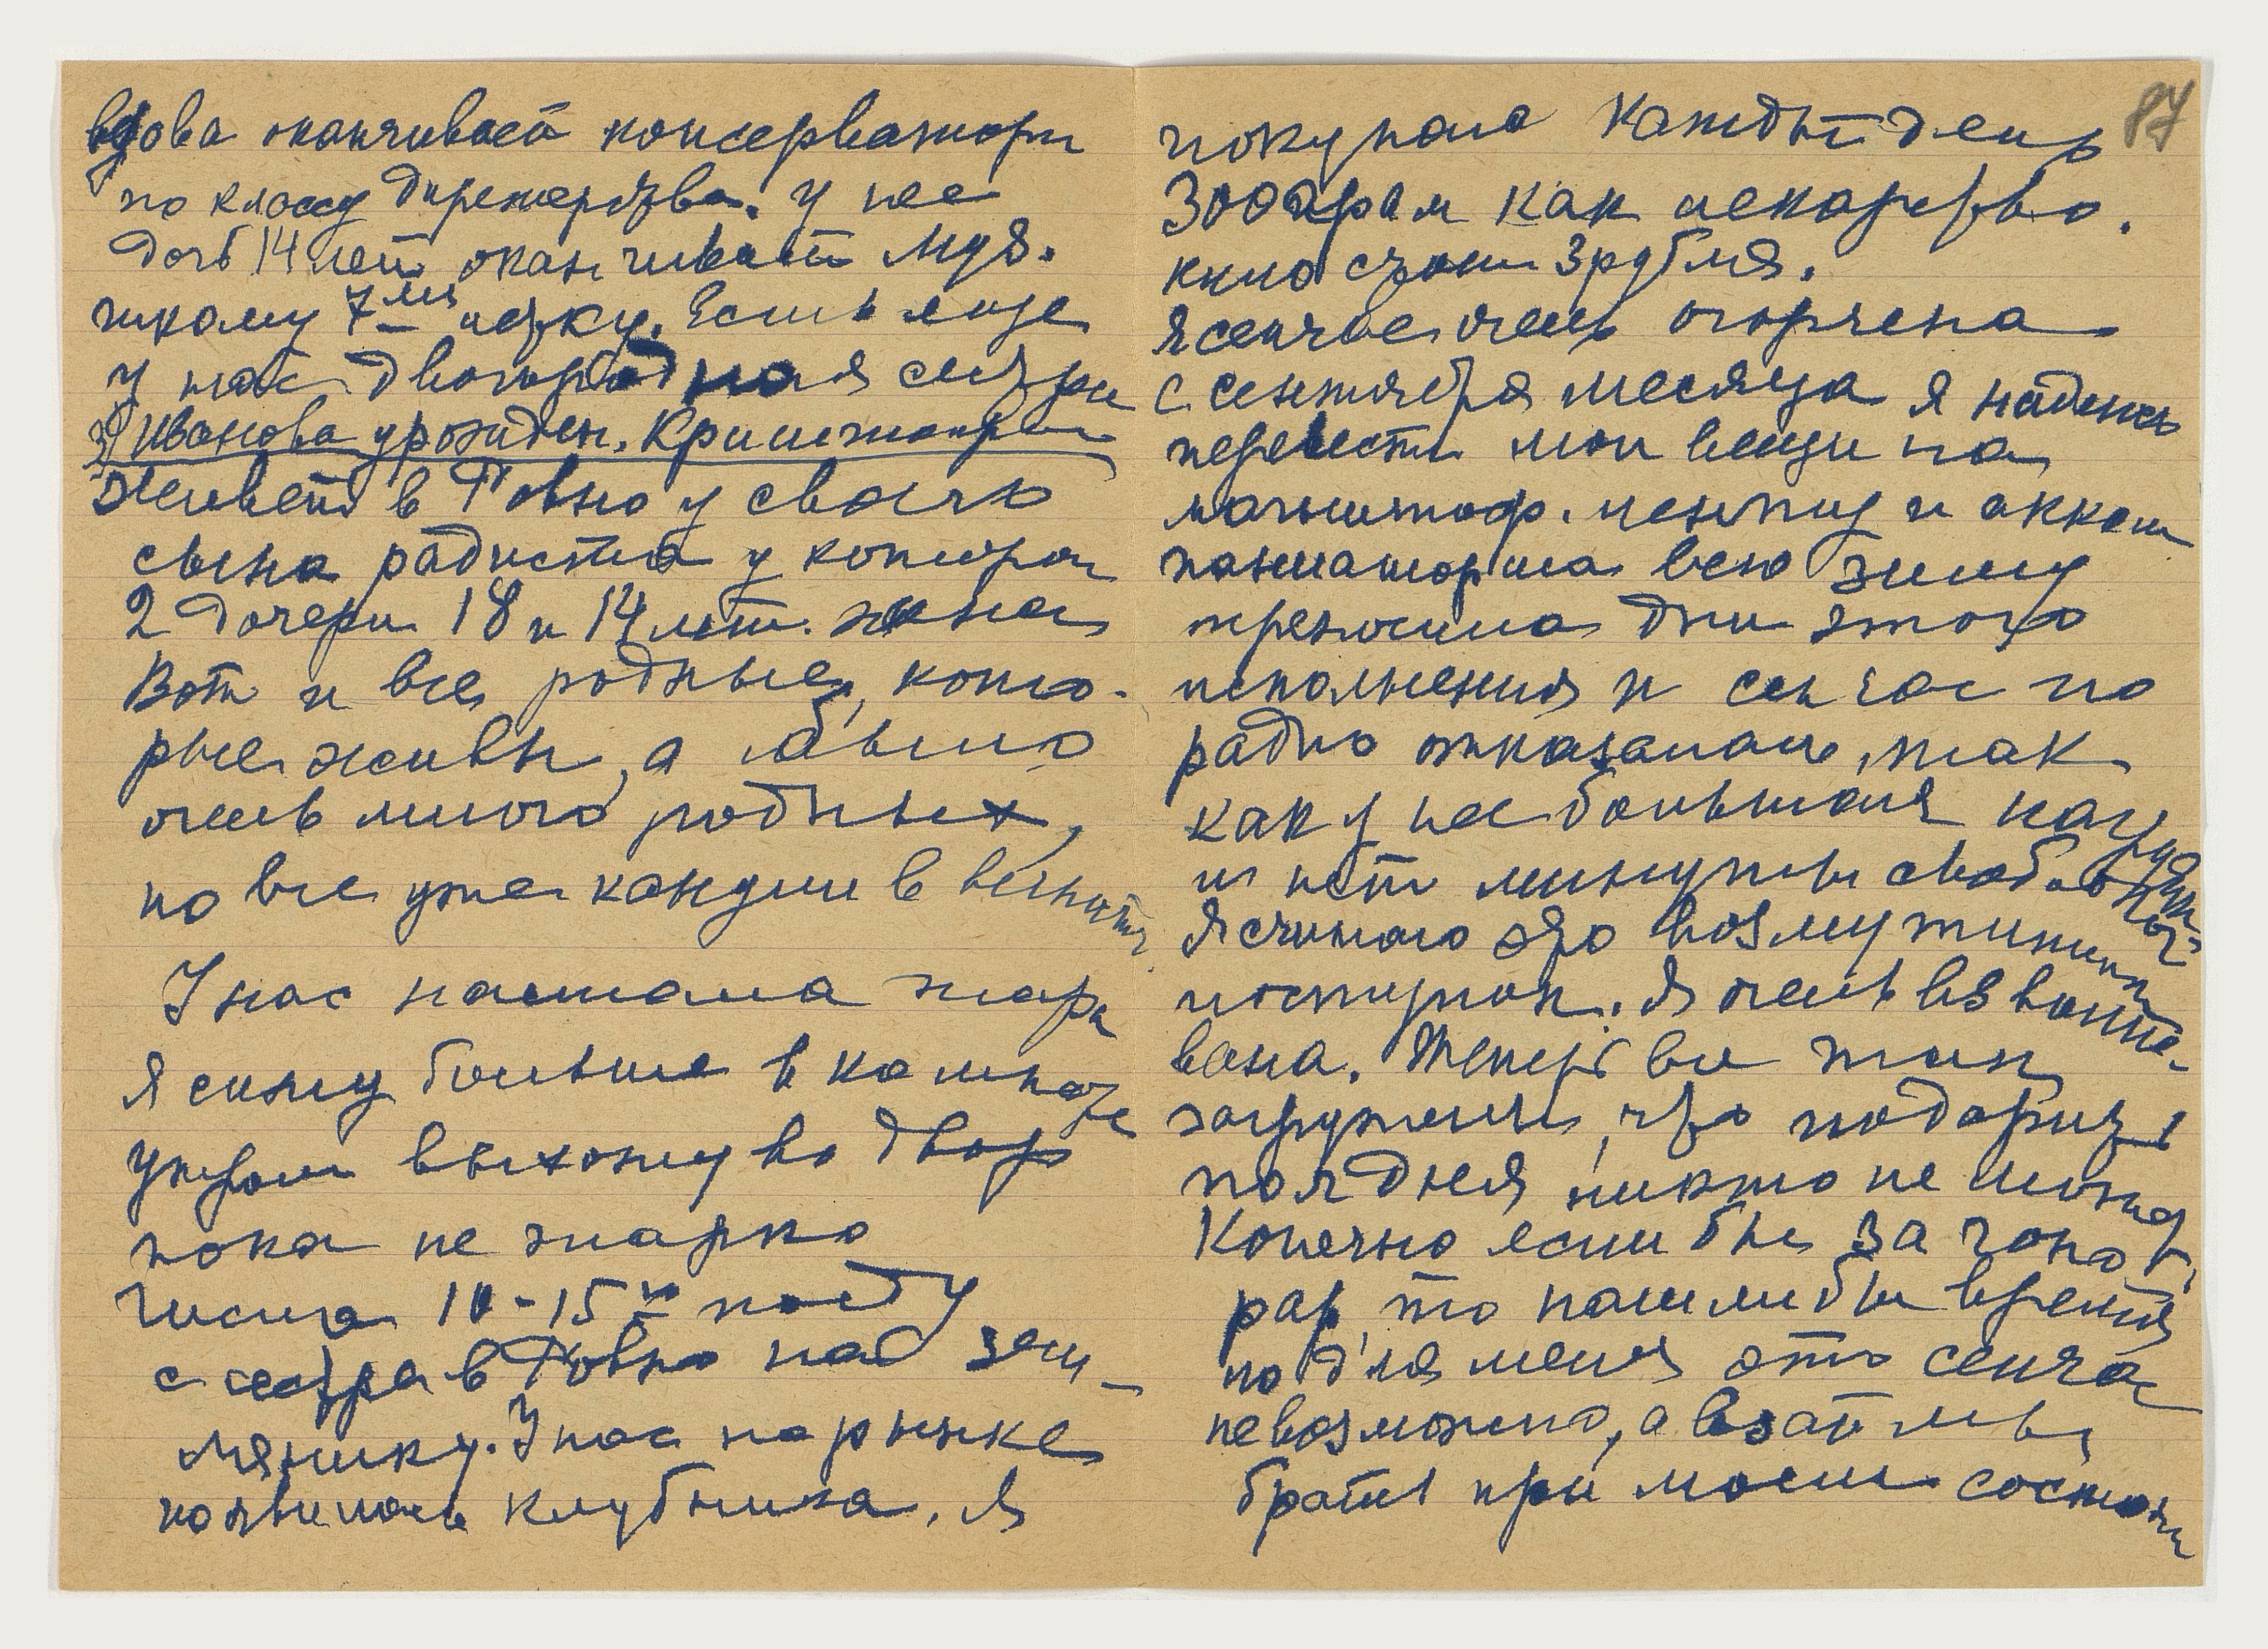 вдова оканчивает консерватори
по классу дирежерства. У нее
дочь 14 лет оканчивает муз.
школу 7-ми летку. Есть еще
у нас двоюродная сестра
Иванова урожден.
Живет в Ровно у своего
сына радиста у которого
2 дочери 18 и 14 лет. жена
Вот и все родные, кото-
рые живы, а было
очень много родных,
но все уже канули в вечность
У нас настала жара
я сижу больше в комнате
утром выхожу во двор
пока не жарко
Числа 10-15го поеду
с сестра в Ровно над зем-
лянику. У нас на рынке
появилась клубника, я
87
покупала каждый день
300 грам как лекарство.
кило стоит 3 рубля.
Я сейчас очень огорчена
с сентября месяца я надеюсь
перевести мои вещи на
магнитоф. ленту и акком
паниаторша всю зиму
для этого
исполнения и сейчас по
радио отказалась, так
как у нее большая нагрузка
и нет минуты свободной
Я считаю это возмутительн
поступок. Я очень взволно-
вана. Теперь все так
загружены, что подарить
пол дня никто не может
Конечно если бы за гоно-
рар, то нашли бы время
но для меня это сейчас
невозможно, а взаймы
брать при моем состоян